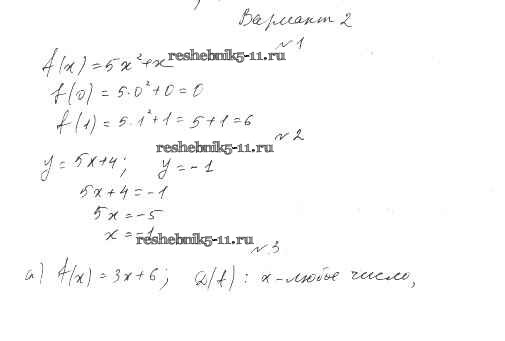 Вариант 2
№1
f(x) = 5x²+x reshebnik5-11.ru
f(0) = 5·0²+0=0
f(1) = 5·1²+1 = 5+1=6
reshebnik5-11.ru №2
y = 5x+4; y = -1
5x+4 = -1
5x = -5
x = -1
reshebnik5-11.ru
№3
а) f(x) = 3x+6; D(f): x-любое число,